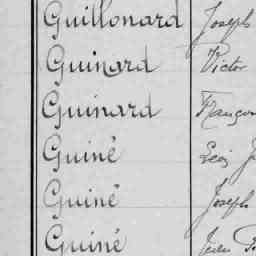 Guillonard Joseph
Guinard Victor
Guinard Françoi
Guiné Léon J
Guiné Joseph
Guiné Jean